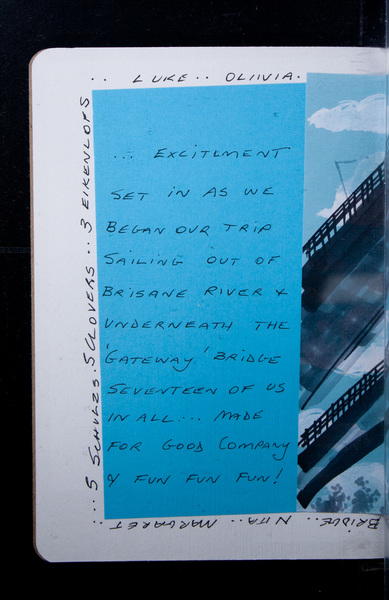 .. LUKE .. OLIIVIA.
... EXCITEMENT
SET IN AS WE
BEGAN OUR TRIP
SAILING OUT OF
BRISANE RIVER &
UNDERNEATH THE
'GATEWAY' BRIDGE
SEVENTEEN OF US
IN ALL... MADE
FOR GOOD COMPANY
& FUN FUN FUN!
... 5 SCHULZS. 5 CLOVERS ... 3 EIKENLOFS
BRIDIE.. NITA .. MARGARET ..